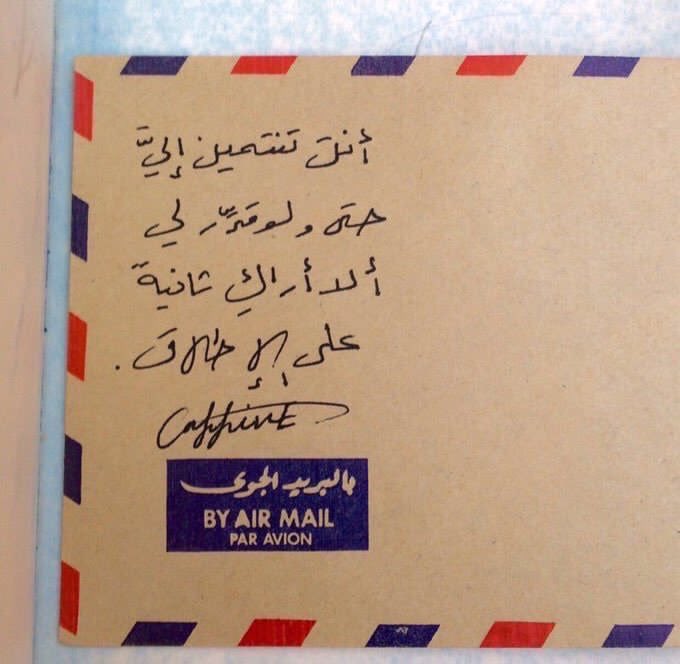 أنتَ تنتمين إليَّ
حتى ولو قدِّر لي
ألا أراكِ ثانيةً
على الإطلاق .
بالبريد الجوى
BY AIR MAIL
PAR AVION